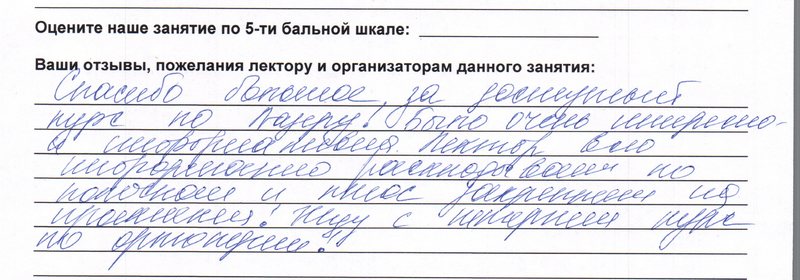 Оцените наше занятие по 5-ти бальной шкале:
Ваши отзывы, пожелания лектору и организаторам данного занятия:
Спасибо большое, за доступный
курс по Лазеру! Было очень интересно
и информативно. Лектор всю
информацию раскладывал по
полочкам и плюс закрепили на
практике! Жду с нетерпением курс
по ортопедии!